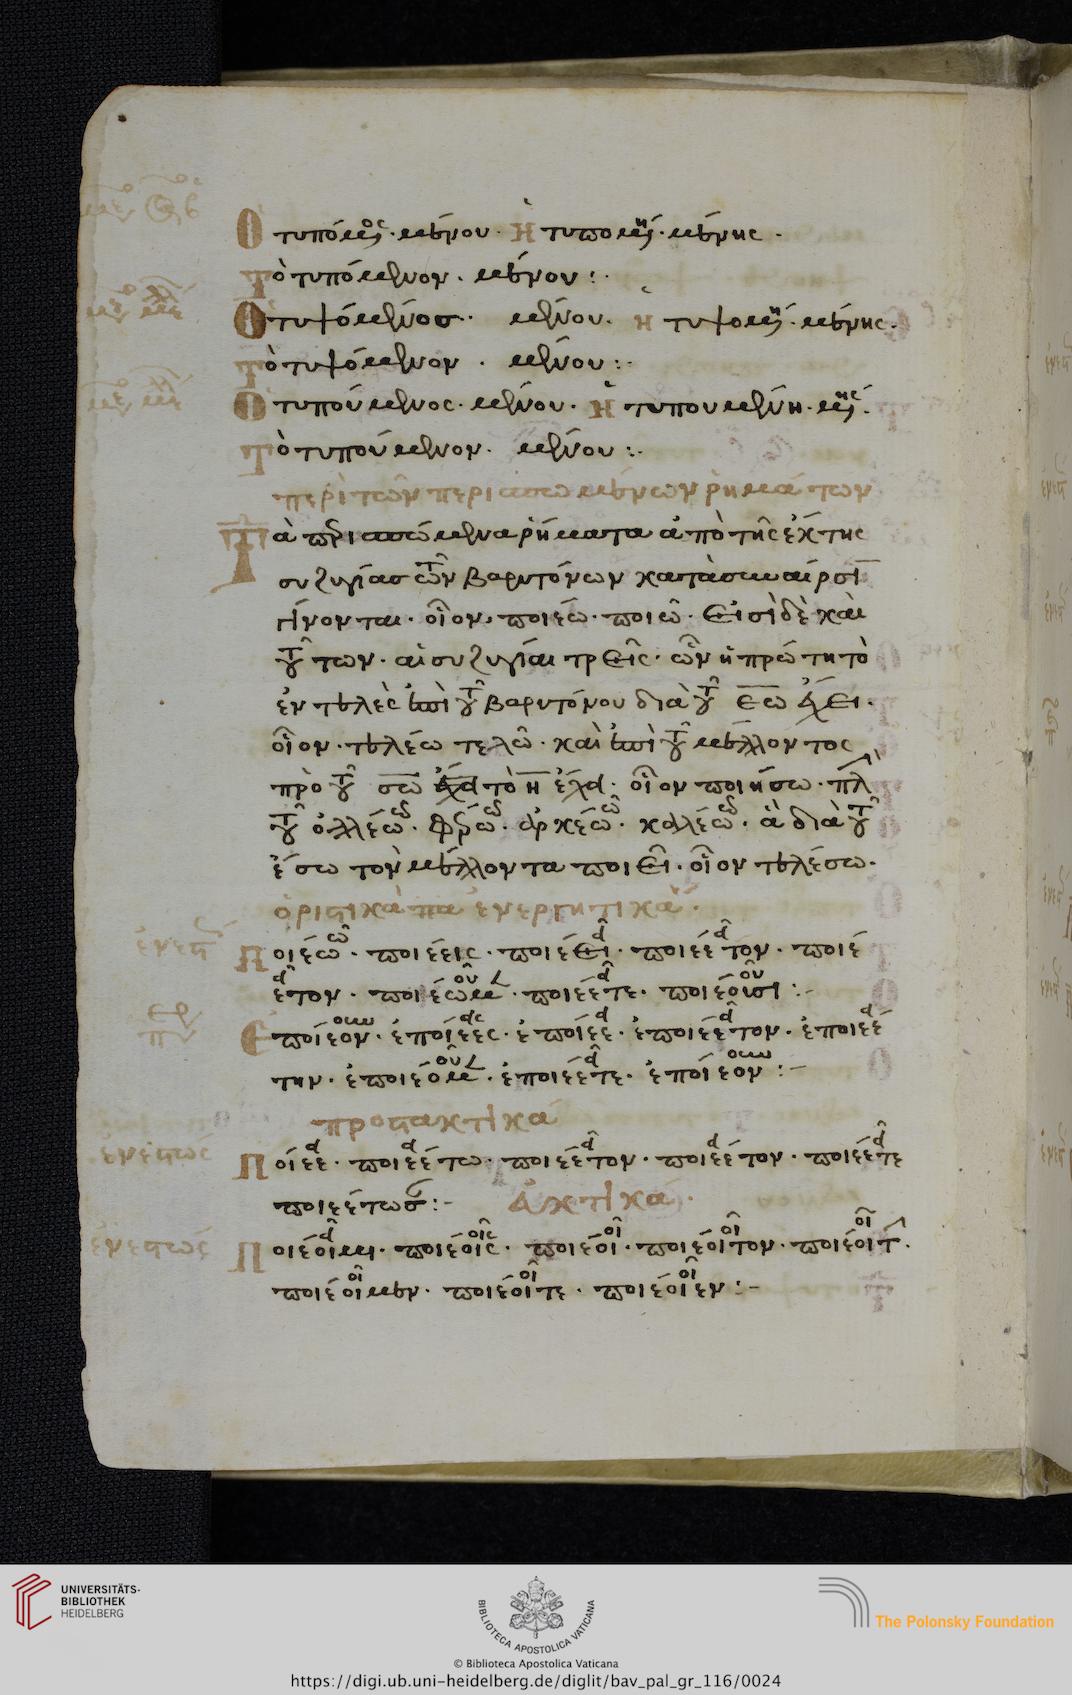 Ὁ τυπόμενος · μένου · Ἡ τυπομένη · μένης ·
Τὸ τυπόμενον · μένου :·
Ὁ τυψόμενος · μένου · ἡ τυψομένη · μένης ·
Τὸ τυψόμενον · μένου :·
Ὁ τυπούμενος · μένου · Ἡ τυπουμένη · μένης ·
Τὸ τυπούμενον · μένου :·
περὶ τῶν περισπωμένων ῥημάτων
Τὰ περισπώμενα ῥήματα ἀπὸ τῆς ἕκτης
συζυγίας τῶν βαρυτόνων κατὰ συναίρεσιν
γίνονται · οἷον, ποιέω · ποιῶ · Εἰσὶ δὲ καὶ
τούτων · αἱ συζυγίαι τρεῖς · ὧν ἡ πρώτη τὸ
ἐν τέλει ἐπὶ τοῦ βαρυτόνου διὰ τοῦ εω ἔχει ·
οἷον · τελέω τελῶ · καὶ ἐπὶ τοῦ μέλλοντος
πρὸ τοῦ σω τὸ η · οἷον ποιήσω · πλὴν
τοῦ ὀλλέω · ἀρκέω · καλέω · ἃ διὰ τοῦ
έσω τὸν μέλλοντα ποιεῖ · οἷον τελέσω ·
ὁριστικὰ ἐνεργητικά ·
Ποιέω · ποιέεις · ποιέει · ποιέετον · ποιέ
ετον · ποιέομεν · ποιέετε · ποιέουσι :-
Ἐποίεον · ἐποίεες · ἐποίεε · ἐποιέετον · ἐποιεέ
την · ἐποιέομεν · ἐποιέετε · ἐποίεον :-
προστακτικά
Ποίεε · ποιεέτω · ποιέετον · ποιεέτων · ποιέετε
ποιεέτωσαν :- Εὐκτικά ·
Ποιέοιμι · ποιέοις · ποιέοι · ποιέοιτον · ποιεοίτην ·
ποιέοιμεν · ποιέοιτε · ποιέοιεν :-
UNIVERSITÄTS-
BIBLIOTHEK
HEIDELBERG
BIBLIOTECA APOSTOLICA VATICANA
The Polonsky Foundation
© Biblioteca Apostolica Vaticana
https://digi.ub.uni-heidelberg.de/diglit/bav_pal_gr_116/0024